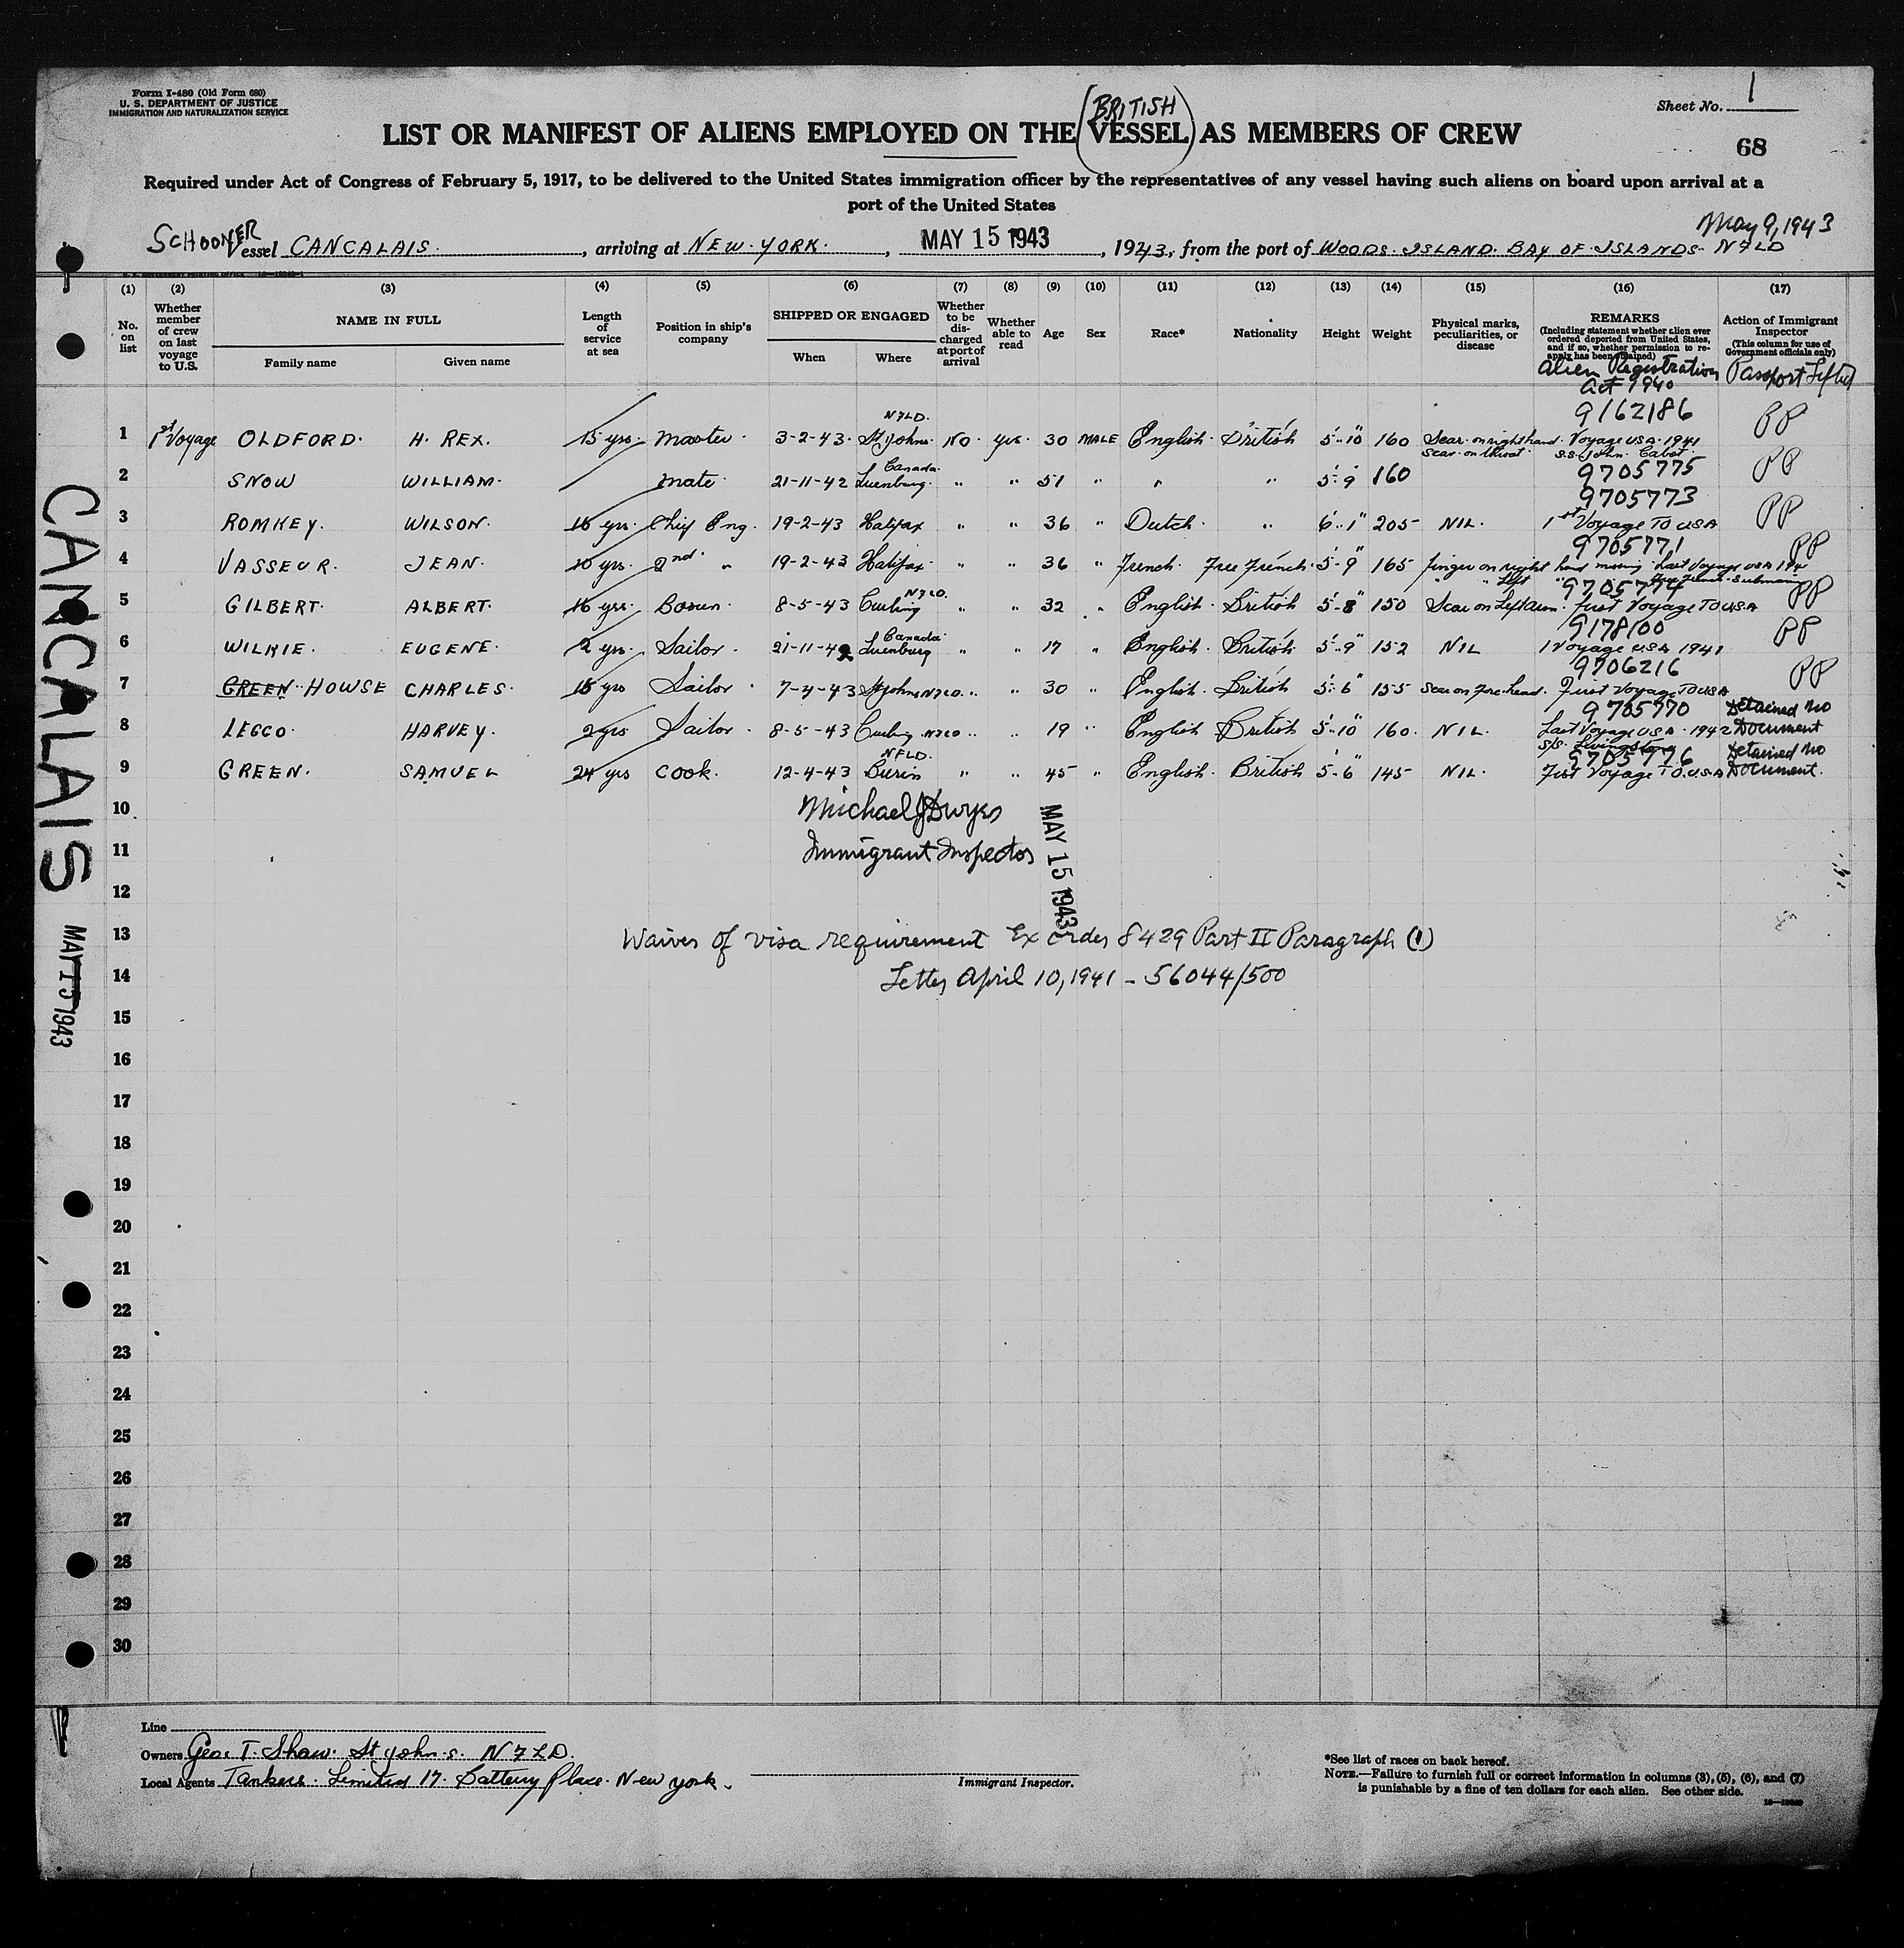 Form I-480 (Old Form 680)
U. S. DEPARTMENT OF JUSTICE
IMMIGRATION AND NATURALIZATION SERVICE
Sheet No. 1
68
(BRITISH
LIST OR MANIFEST OF ALIENS EMPLOYED ON THE VESSEL) AS MEMBERS OF CREW
Required under Act of Congress of February 5, 1917, to be delivered to the United States immigration officer by the representatives of any vessel having such aliens on board upon arrival at a
port of the United States
May 9, 1943
SCHOONER Vessel CANCALAIS, arriving at NEW YORK, MAY 15 1943, 1943, from the port of WOODS ISLAND BAY OF ISLANDS NFLD
(1) (2) (3) (4) (5) (6) (7) (8) (9) (10) (11) (12) (13) (14) (15) (16) (17)
No. on list
Whether member of crew on last voyage to U.S.
NAME IN FULL
Family name Given name
Length of service at sea
Position in ship's company
SHIPPED OR ENGAGED
When Where
Whether to be discharged at port of arrival
Whether able to read
Age
Sex
Race*
Nationality
Height
Weight
Physical marks, peculiarities, or disease
REMARKS
(Including statement whether alien ever ordered deported from United States, and if so, whether permission to reapply has been obtained)
Alien Registration Act 1940
Action of Immigrant Inspector
(This column for use of Government officials only)
Passport Lifted
1 1st Voyage OLDFORD. H. REX. 15 yrs. Master. 3-2-43. St Johns. NFLD. NO. yes. 30 MALE English. British 5'-10" 160 Scar on right hand. Scar on throat. 9162186 Voyage USA 1941 S.S. John Cabot. PP
2 SNOW WILLIAM. Mate. 21-11-42 Luenburg. Canada. " " 51 " " " 5'-9" 160 9705775 PP
3 ROMKEY. WILSON. 18 yrs. Chief Eng. 19-2-43 Halifax " " 36 " Dutch. " 6'-1" 205 NIL. 9705773 1st Voyage TO USA PP
4 VASSEUR. JEAN. 10 yrs. 2nd " 19-2-43 Halifax. " " 36 " French. Free French. 5'-9" 165 finger on right hand missing " " Left " 9705771 Last Voyage USA Free French Submarine PP
5 GILBERT. ALBERT. 16 yrs. Bosun. 8-5-43 Curling NFLD. " " 32 " English. British 5'-8" 150 Scar on Left arm. 9705774 First Voyage TO USA PP
6 WILKIE. EUGENE. 2 yrs. Sailor. 21-11-42 Luenburg Canada. " " 17 " English. British. 5'-9" 152 NIL 9178100 1 Voyage USA 1941 PP
7 GREEN HOWSE CHARLES. 15 yrs Sailor. 7-4-43 St Johns NFLD. " " 30 " English. British 5'-6" 155 Scar on Forehead. 9706216 First Voyage TO USA PP
8 LEGGO. HARVEY. 2 yrs Sailor. 8-5-43 Curling NFLD " " 19 " English British 5'-10" 160. NIL. 9705770 Last Voyage USA 1942 S/S. Livingstone Detained No Document
9 GREEN. SAMUEL 24 yrs Cook. 12-4-43 Burin NFLD. " " 45 " English. British 5'-6" 145 NIL. 9705776 First Voyage TO. USA Detained No Document.
10 Michael J Dwyer
11 Immigrant Inspector
MAY 15 1943
12
13 Waiver of visa requirement Ex order 8429 Part II Paragraph (1)
14 Letter April 10, 1941 - 56044/500
15
16
17
18
19
20
21
22
23
24
25
26
27
28
29
30
CANCALAIS MAY 15 1943
Line
Owners Geo. T. Shaw. St John.s. NFLD.
Local Agents Tankers. Limited 17. Battery Place. New York.
Immigrant Inspector.
*See list of races on back hereof.
NOTE.—Failure to furnish full or correct information in columns (3), (5), (6), and (7)
is punishable by a fine of ten dollars for each alien. See other side.